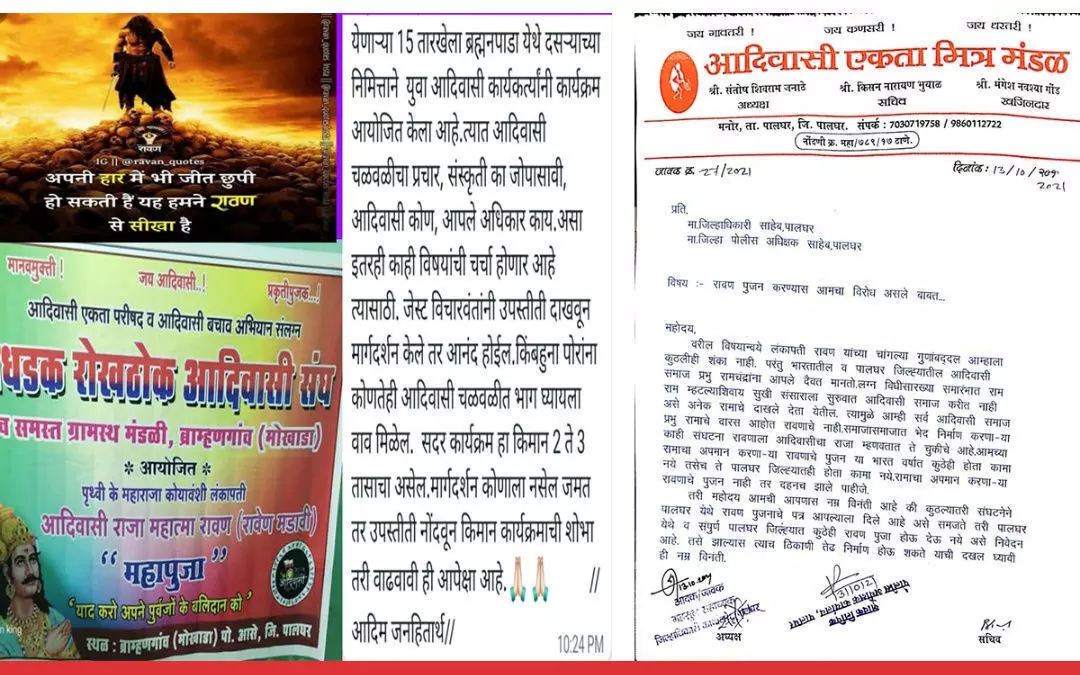 रावण
IG || @ravan_quotes
अपनी हार में भी जीत छुपी
हो सकती हैं यह हमने रावण
से सीखा है
मानवमुक्ती !
जय आदिवासी..!
प्रकृतीपुजक...!
आदिवासी एकता परीषद व आदिवासी बचाव अभियान संलग्न
धडक रोखठोक आदिवासी संघ
व समस्त ग्रामस्थ मंडळी, ब्राम्हणगांव (मोखाडा)
* आयोजित *
पृथ्वी के महाराजा कोयावंशी लंकापती
आदिवासी राजा महात्मा रावण (रावेण मडावी)
"महापुजा"
"याद करो अपने पुर्वजों के बलिदान को"
स्थळ : ब्राम्हणगांव (मोखाडा) पो. आसे, जि. पालघर
येणाऱ्या 15 तारखेला ब्रह्मनपाडा येथे दसऱ्याच्या
निमित्ताने युवा आदिवासी कार्यकर्त्यांनी कार्यक्रम
आयोजित केला आहे.त्यात आदिवासी
चळवळीचा प्रचार, संस्कृती का जोपासावी,
आदिवासी कोण, आपले अधिकार काय.असा
इतरही काही विषयांची चर्चा होणार आहे
त्यासाठी. जेस्ट विचारवंतांनी उपस्तीती दाखवून
मार्गदर्शन केले तर आनंद होईल.किंबहुना पोरांना
कोणतेही आदिवासी चळवळीत भाग घ्यायला
वाव मिळेल. सदर कार्यक्रम हा किमान 2 ते 3
तासाचा असेल.मार्गदर्शन कोणाला नसेल जमत
तर उपस्तीती नोंदवून किमान कार्यक्रमाची शोभा
तरी वाढवावी ही आपेक्षा आहे,🙏🏻🙏🏻 //
आदिम जनहितार्थ//
10:24 PM
जय गावतरी !
जय कणसरी !
जय धरतरी !
आदिवासी एकता मित्र मंडळ
श्री. संतोष शिवराम जनाठे
श्री. किसन नारायण भुयाळ
श्री. मंगेश नवश्या गोंड
अध्यक्ष
सचिव
खजिनदार
मनोर, ता. पालघर, जि. पालघर. संपर्क : 7030719758 / 9860112722
नोंदणी क्र. महा/७८९/१७ ठाणे.
जावक क्र. 27/2021
दिनांक : 13/10/२०१
2021
प्रति,
मा.जिल्हाधिकारी साहेब,पालघर
मा.जिल्हा पोलीस अधिक्षक साहेब,पालघर
विषय :- रावण पुजन करण्यास आमचा विरोध असले बाबत...
महोदय,
वरील विषयान्वये लंकापती रावण यांच्या चांगल्या गुणांबद्दल आम्हाला
कुठलीही शंका नाही. परंतु भारतातील व पालघर जिल्ह्यातील आदिवासी
समाज प्रभु रामचंद्रांना आपले दैवत मानतो.लग्न विधीसारख्या समारंभात राम
राम म्हटल्याशिवाय सुखी संसाराला सुरुवात आदिवासी समाज करीत नाही
असे अनेक रामाचे दाखले देता येतील. त्यामुळे आम्ही सर्व आदिवासी समाज
प्रभु रामाचे वारस आहोत रावणाचे नाही.समाजासमाजात भेद निर्माण करणा-या
काही संघटना रावणाला आदिवासीचा राजा म्हणवतात ते चुकीचे आहे.आमच्या
रामाचा अपमान करणा-या रावणाचे पुजन या भारत वर्षात कुठेही होता कामा
नये तसेच ते पालघर जिल्ह्यातही होता कामा नये.रामाचा अपमान करणा-या
रावणाचे पुजन नाही तर दहनच झाले पाहीजे.
तरी महोदय आमची आपणास नम्र विनंती आहे की कुठल्यातरी संघटनेने
पालघर येथे रावण पुजनाचे पत्र आपल्याला दिले आहे असे समजते तरी पालघर
येथे व संपुर्ण पालघर जिल्ह्यात कुठेही रावण पुजा होऊ देऊ नये असे निवेदन
आहे. तसे झाल्यास त्याच ठिकाणी तेढ निर्माण होऊ शकते याची दखल घ्यावी
ही नम्र विनंती.
अध्यक्ष
सचिव